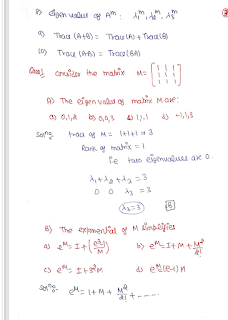 8) Eigen value of Aᵐ : λ₁ᵐ, λ₂ᵐ, λ₃ᵐ
9) Trace (A+B) = Trace(A) + Trace(B)
(10) Trace (AB) = Trace(BA)
Consider the matrix M = [1 1 1; 1 1 1; 1 1 1]
A) The eigen values of matrix M are:
a) 0,1,2 b) 0,0,3 c) 1,1,1 d) -1,1,3
trace of M = 1+1+1 = 3
Rank of matrix = 1
i.e two eigenvalues are 0.
λ₁ + λ₂ + λ₃ = 3
0 0 λ₃ = 3
λ₃ = 3 B
B) The exponential of M simplifies
b) eᴹ = I + M + M²/2!
eᴹ = I + M + M²/2! + ........